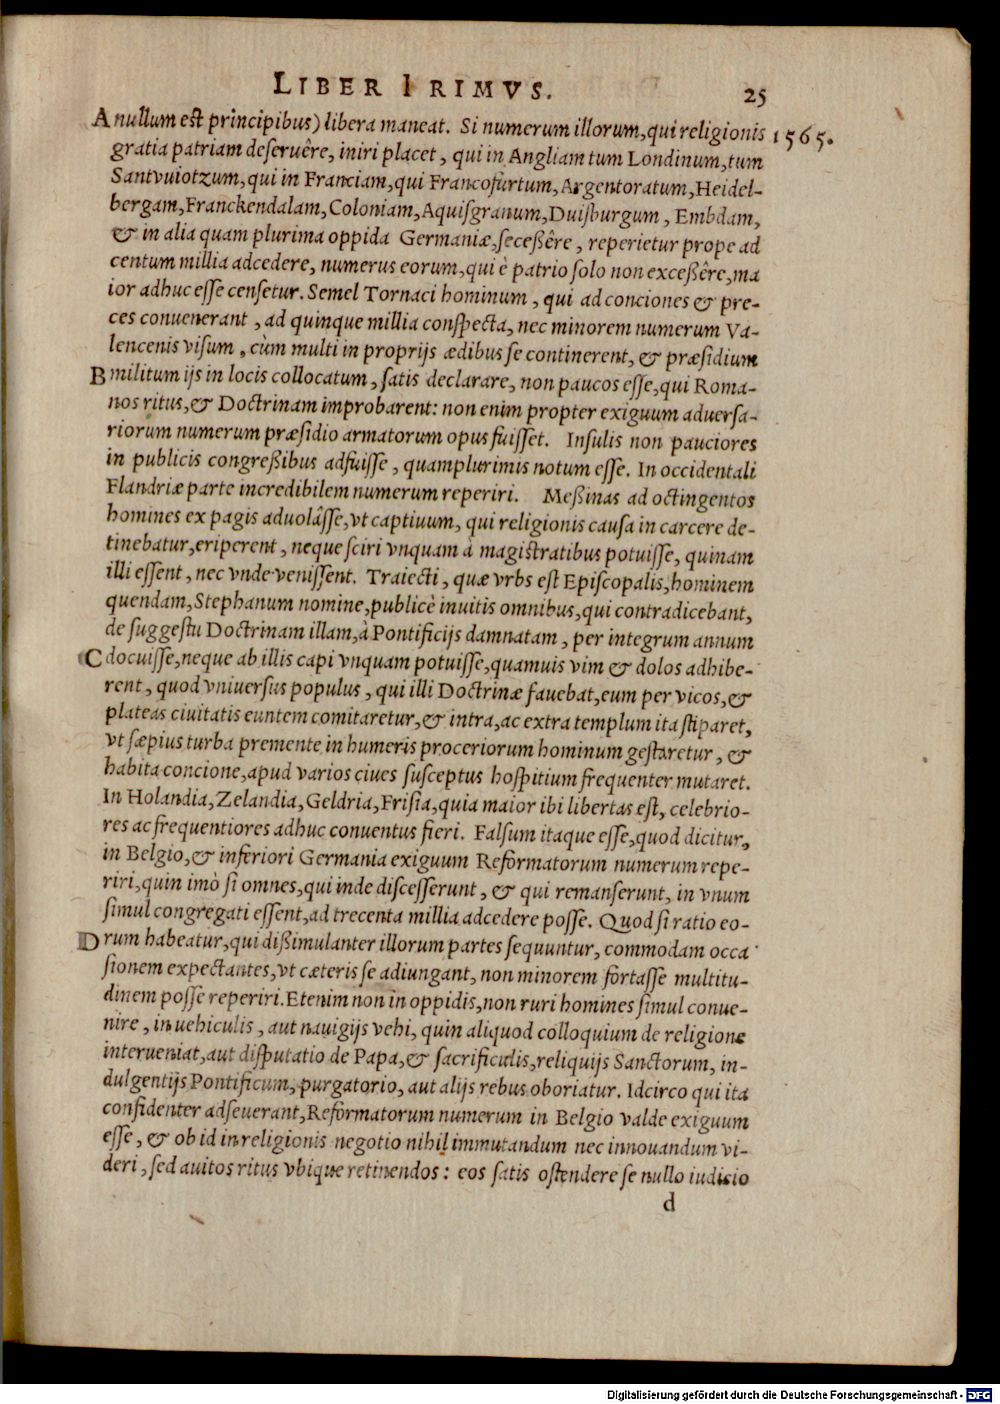 LIBER PRIMVS. 25
A nullum est principibus) libera maneat. Si numerum illorum, qui religionis 1565.
gratia patriam deseruêre, iniri placet, qui in Angliam tum Londinum, tum
Santvuiotzum, qui in Franciam, qui Francofurtum, Argentoratum, Heidel-
bergam, Franckendalam, Coloniam, Aquisgranum, Duisburgum, Embdam,
& in alia quam plurima oppida Germaniæ, secessêre, reperietur prope ad
centum millia adcedere, numerus eorum, qui è patrio solo non excessêre, ma
ior adhuc esse censetur. Semel Tornaci hominum, qui ad conciones & pre-
ces conuenerant, ad quinque millia conspecta, nec minorem numerum Va-
lencenis visum, cùm multi in proprijs ædibus se continerent, & præsidium
B militum ijs in locis collocatum, satis declarare, non paucos esse, qui Roma-
nos ritus, & Doctrinam improbarent: non enim propter exiguum aduersa-
riorum numerum præsidio armatorum opus fuisset. Insulis non pauciores
in publicis congreßibus adfuisse, quamplurimis notum esse. In occidentali
Flandriæ parte incredibilem numerum reperiri. Meßinas ad octingentos
homines ex pagis aduolâsse, vt captiuum, qui religionis causa in carcere de-
tinebatur, eriperent, neque sciri vnquam à magistratibus potuisse, quinam
illi essent, nec vnde venissent. Traiecti, quæ vrbs est Episcopalis, hominem
quendam, Stephanum nomine, publicè inuitis omnibus, qui contradicebant,
de suggestu Doctrinam illam, à Pontificijs damnatam, per integrum annum
C docuisse, neque ab illis capi vnquam potuisse, quamuis vim & dolos adhibe-
rent, quod vniuersus populus, qui illi Doctrinæ fauebat, eum per vicos, &
plateas ciuitatis euntem comitaretur, & intra, ac extra templum ita stiparet,
vt sæpius turba premente in humeris proceriorum hominum gestaretur, &
habita concione, apud varios ciues susceptus hospitium frequenter mutaret.
In Holandia, Zelandia, Geldria, Frisia, quia maior ibi libertas est, celebrio-
res ac frequentiores adhuc conuentus fieri. Falsum itaque esse, quod dicitur,
in Belgio, & inferiori Germania exiguum Reformatorum numerum repe-
riri, quin imò si omnes, qui inde discesserunt, & qui remanserunt, in vnum
simul congregati essent, ad trecenta millia adcedere posse. Quod si ratio eo-
D rum habeatur, qui dißimulanter illorum partes sequuntur, commodam occa
sionem expectantes, vt cæteris se adiungant, non minorem fortasse multitu-
dinem posse reperiri. Etenim non in oppidis, non ruri homines simul conue-
nire, in uehiculis, aut nauigijs vehi, quin aliquod colloquium de religione
interueniat, aut disputatio de Papa, & sacrificulis, reliquijs Sanctorum, in-
dulgentijs Pontificum, purgatorio, aut alijs rebus oboriatur. Idcirco qui ita
confidenter adseuerant, Reformatorum numerum in Belgio valde exiguum
esse, & ob id in religionis negotio nihil immutandum nec innouandum vi-
deri, sed auitos ritus vbique retinendos: eos satis ostendere se nullo iudicio
d
Digitalisierung gefördert durch die Deutsche Forschungsgemeinschaft - DFG